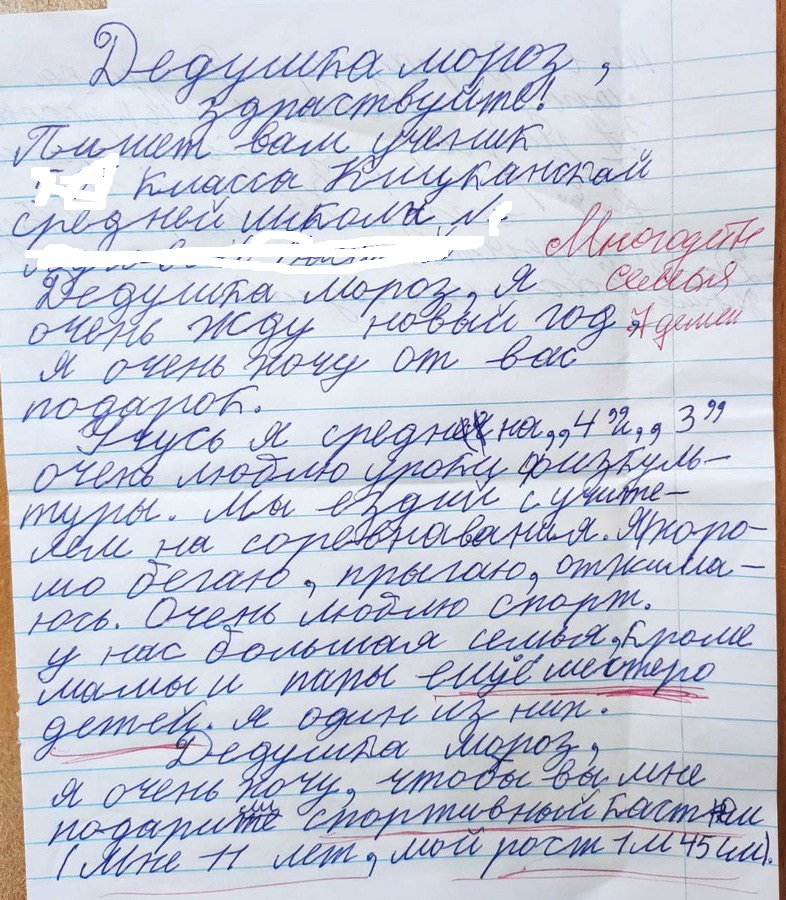 Дедушка мороз,
здраствуйте!
Пишет вам ученик
класса Кицканской
средней школы №
Многодетн
Дедушка мороз, я
семья
очень жду новый год,
7 детей
я очень хочу от вас
подарок.
Учусь я средне на „4" и „3"
очень люблю уроки физкуль-
туры. Мы ездии с учите-
лем на соревнавания. Я хоро-
шо бегаю, прыгаю, отжима-
юсь. Очень люблю спорт.
у нас большая семья, кроме
мамы и папы ещё шестеро
детей. я один из них.
Дедушка мороз,
я очень хочу, чтобы вы мне
подарили спортивный кастюм
(Мне 11 лет, мой рост 1 м 45 см).